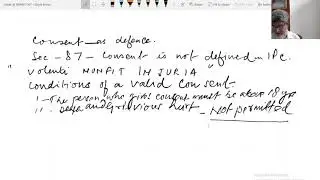 Consent as defence.
Sec - 87 - Consent is not defined in IPC.
"Volenti NONFIT INJURIA"
Conditions of a valid Consent.
1 - The person who gives consent must be above 18 yr
11. and Grievious hurt - Not permitted